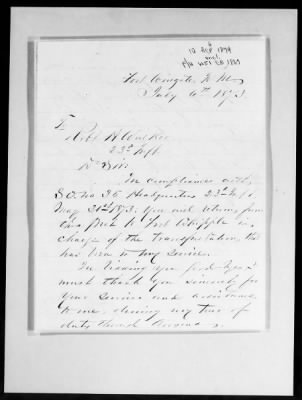 Fort Wingate N. M.
July 6th 1873.
To
23d Inf
Dr Sir
In compliance with
S.O. No 36 Headquarters 23d Inf.
May 21st 1873. You will return from
this Post to Fort Whipple in
charge of the transportation, that
has been in my service.
In leaving you
must thank you sincerely for
your service and assistance
to me during my tour of
duty through Arizona